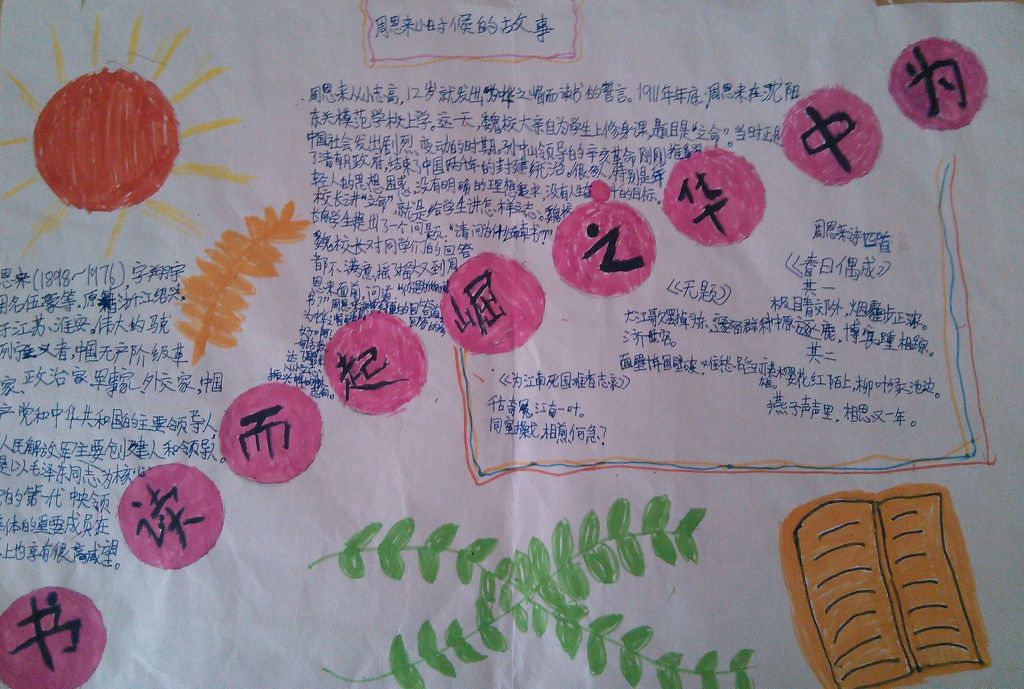 周恩来小时候的故事
为中华之崛起而读书
周恩来从小志高,12岁就发出"为中华之崛而读书"的誓言。1911年年底,周恩来在沈阳
东关模范学校上学。这一天,魏校大亲自为学生上修身课,题目是"立命"当时正是
中国社会发出剧烈变动的时期。孙中山领导的辛亥革命刚刚推翻
了清朝政府,结束了中国两千年的封建统治。很多人,特别是年
轻人的思想
没有明确的理想追求,没有人生
的目标。
校长讲"立命",就是给学生讲怎样立志。魏校
长向学生提出了个问题:"请问为什么读书?"
魏校长对同学们的回答
都不满意,摇了摇头又到周
恩来面前,问道:
恩来(1898~1976),字翔宇
用名伍豪等,原籍浙江绍兴,
于江苏、淮安,伟大的马克
列宁主义者,中国无产阶级革
家、政治家、军事家、外交家,中国
产党和中华共和国的主要领导人,
人民解放军主要创建人和领导人。
是以毛泽东同志为核
的第一代中央领
体的重要成员在
上也享有很高威望。
周恩来诗四首
《春日偶成》
其一
极目青郊外,烟霾步正浓。
中原方逐鹿,博浪踵相踪。
其二
樱花红陌上,柳叶绿池边。
燕子声声里,相思又一年。
《无题》
大江歌罢掉头东,邃密群科
济世穷。
面壁十年图破壁,难酬蹈海亦英
雄。
《为江南死国难者志哀》
千古奇冤,江南一叶。
同室操戈,相煎何急?